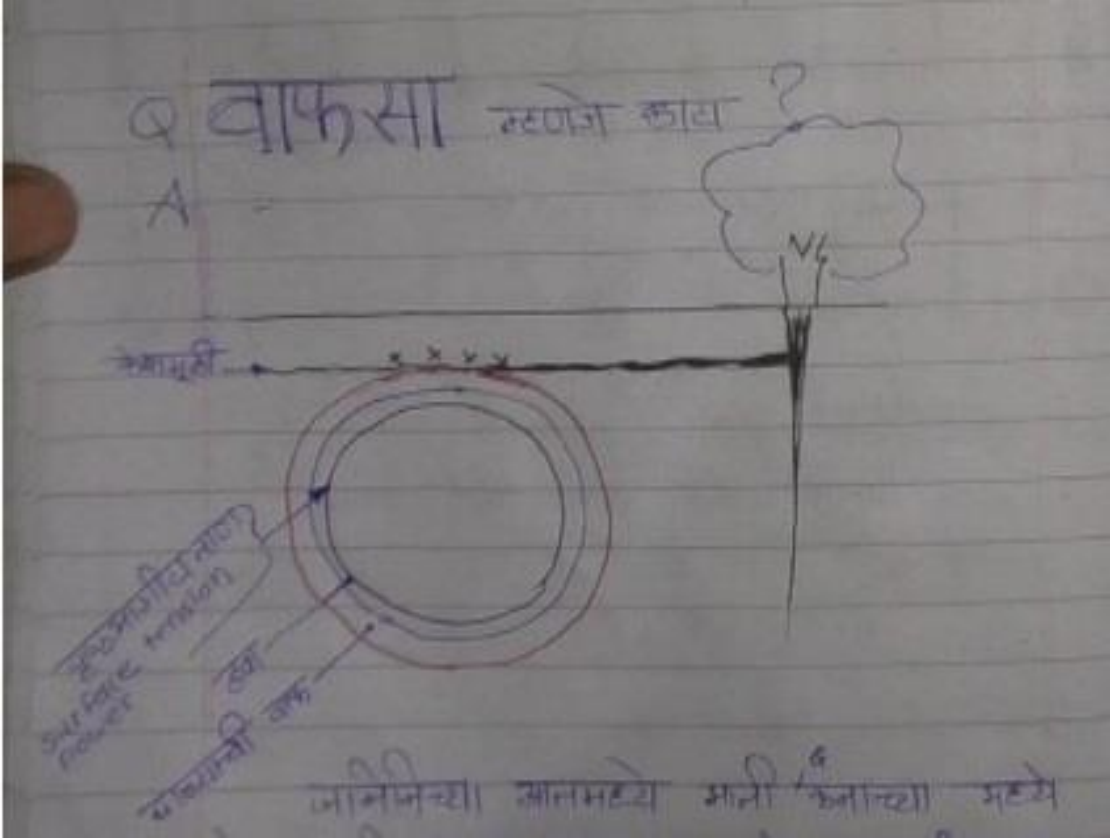 Q वाफसा म्हणजे काय ?
A -
केशमूळी
पृष्ठभागीय ताण
surface tension
power
हवा
पाण्याची वाफ
जमिनिच्या आतमध्ये माती कणाच्या मध्ये